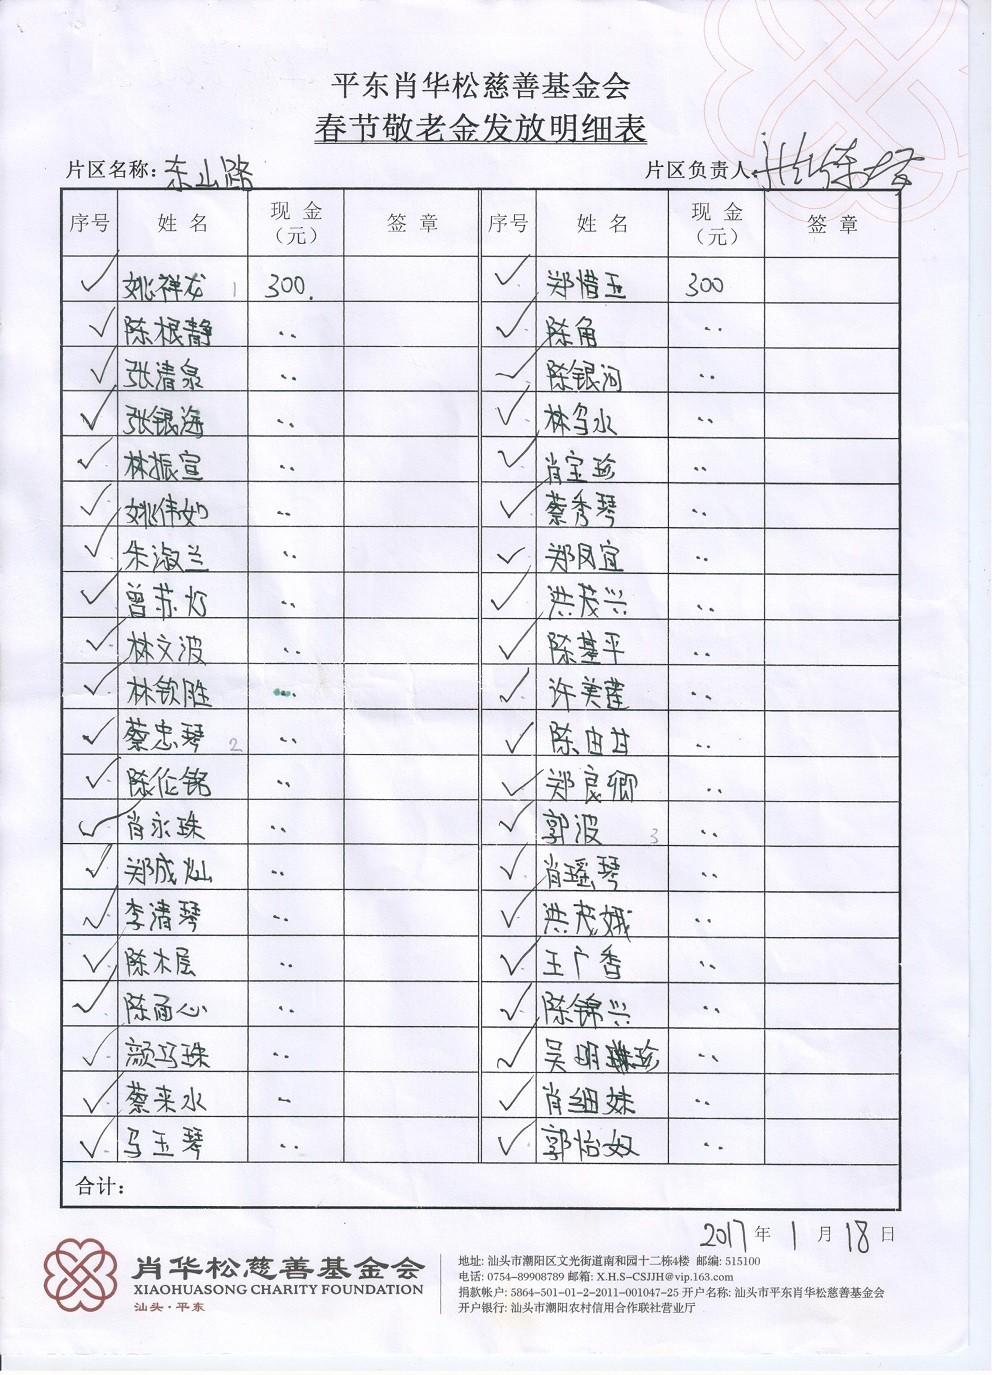 平东肖华松慈善基金会
春节敬老金发放明细表
片区名称：东山路 片区负责人：
序号 姓名 现金（元） 签章 序号 姓名 现金（元） 签章
✓ 姚祥龙 1 300. ✓ 郑惜玉 300
✓ 陈根静 〃 ✓ 陈角 〃
✓ 张清泉 〃 ✓ 陈银河 〃
✓ 张银海 〃 ✓ 林乌水 〃
✓ 林振宣 〃 ✓ 肖宝珍 〃
✓ 姚伟如 〃 ✓ 蔡秀琴 〃
✓ 朱淑兰 〃 ✓ 郑凤宜 〃
✓ 曾苏灯 〃 ✓ 洪茂兴 〃
✓ 林文波 〃 ✓ 陈基平 〃
✓ 林钦胜 〃 ✓ 许美莲 〃
✓ 蔡忠琴 2 〃 ✓ 陈由甘 〃
✓ 陈伦锦 〃 ✓ 郑良卿 〃
✓ 肖永珠 〃 ✓ 郭波 3 〃
✓ 郑成灿 〃 ✓ 肖瑶琴 〃
✓ 李清琴 〃 ✓ 洪茂娥 〃
✓ 陈木层 〃 ✓ 王广香 〃
✓ 陈函心 〃 ✓ 陈锦兴 〃
✓ 颜巧珠 〃 ✓ 吴明珍 〃
✓ 蔡来水 〃 ✓ 肖细妹 〃
✓ 马玉琴 〃 ✓ 郭怡奴 〃
合计：
2017年1月18日
肖华松慈善基金会
XIAOHUASONG CHARITY FOUNDATION
汕头·平东
地址: 汕头市潮阳区文光街道南和园十二栋4楼 邮编: 515100
电话: 0754-89908789 邮箱: X.H.S-CSJJH@vip.163.com
捐款帐户: 5864-501-01-2-2011-001047-25 开户名称: 汕头市平东肖华松慈善基金会
开户银行: 汕头市潮阳农村信用合作联社营业厅